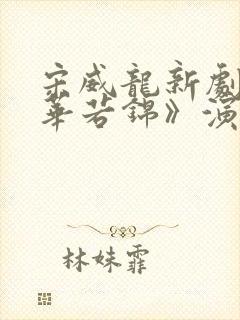 宋威龍新劇
華若錦》演
林姝霏